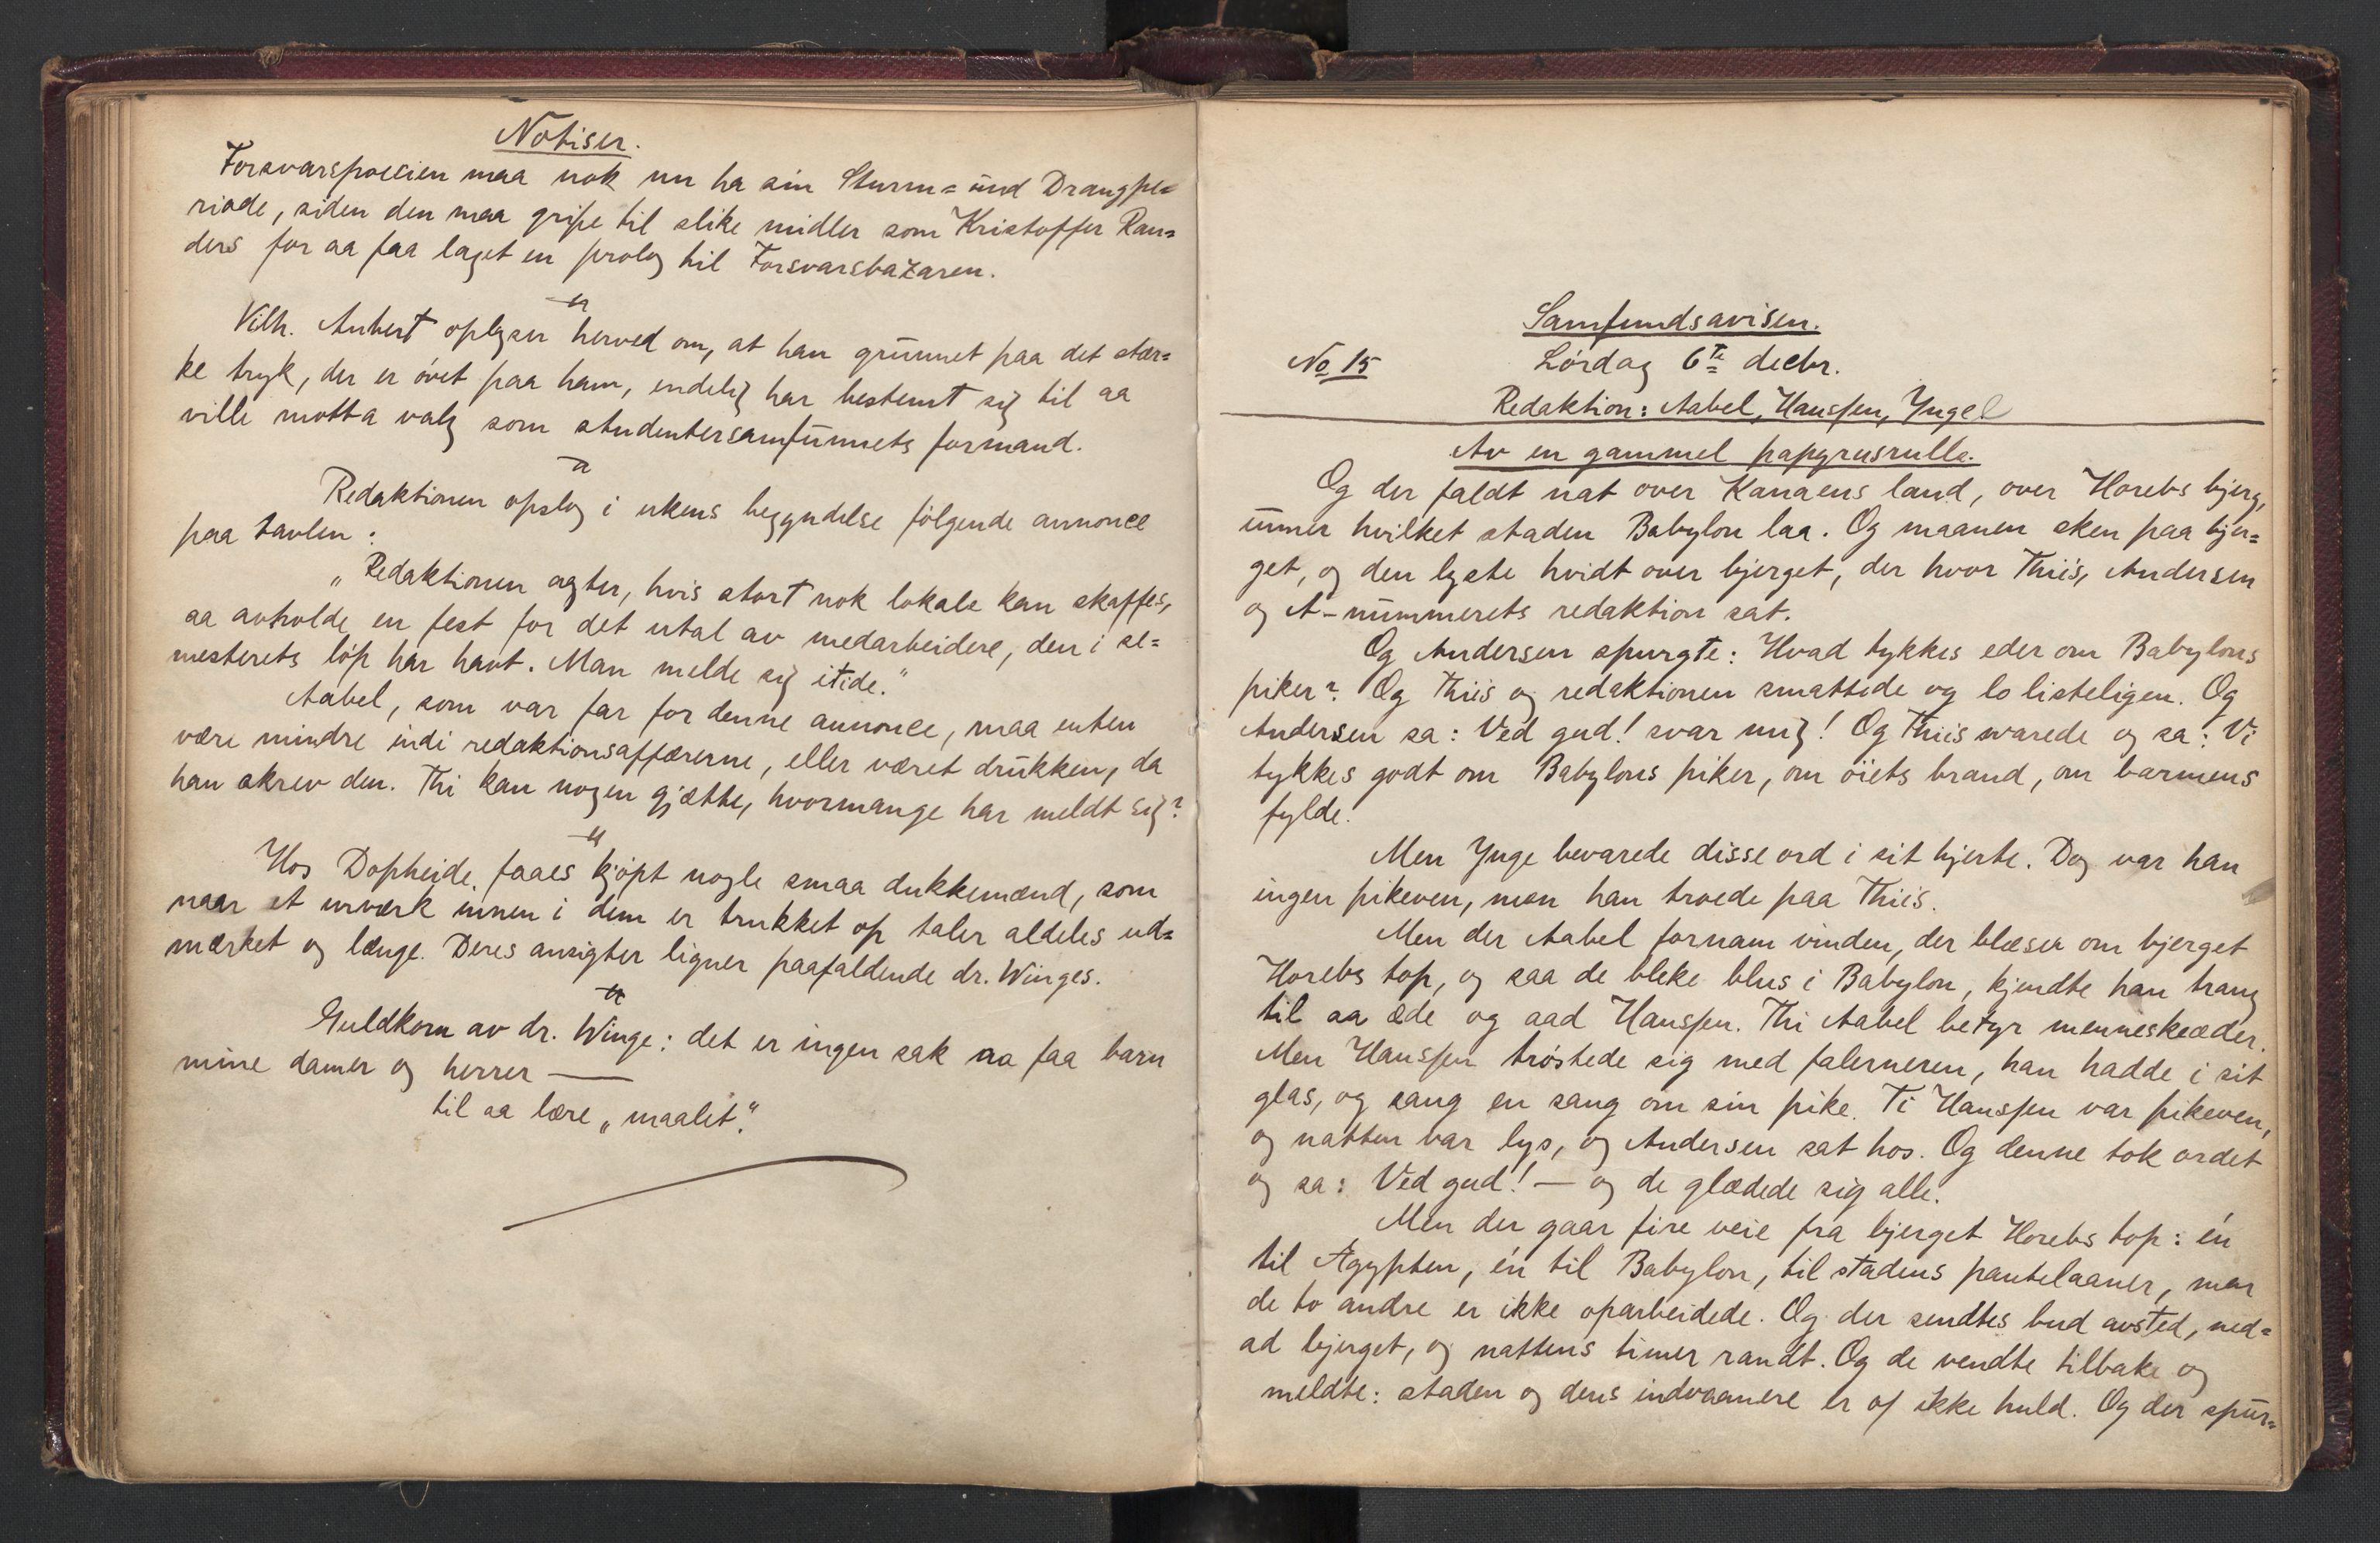 Notiser.
Forsvarspoesien maa nok nu ha sin Sturm= und Drangpe=
riode, siden den maa gripe til slike midler som Kristoffer Ran=
ders for aa faa laget en prolog til Forsvarsbazaren.
Vilh. Aubert oplyser herved om, at han grunnet paa det stær=
ke tryk, der er óvet paa ham, endelig har bestemt sig til aa
ville motta valg som studentersamfunnets formand.
Redaktionen opslog i ukens begyndelse fólgende annonce
paa tavlen:
„Redaktionen agter, hvis stort nok lokale kan skaffes,
aa avholde en fest for det utal av medarbeidere, den i se=
mesterets lóp har havt. Man melde sig itide."
Aabel, som var far for denne annonce, maa enten
være mindre indi redaktionsaffærerne, eller været drukken, da
han skrev den. Thi kan nogen gjætte, hvormange har meldt sig?
Hos Dopheide faaes kjópt nogle smaa dukkemænd, som
naar et urværk innen i dem er trukket op taler aldeles ud=
mærket og længe. Deres ansigter ligner paafaldende dr. Winges.
Guldkorn av dr. Winge: det er ingen sak aa faa barn
mine damer og herrer —
til aa lære „maalet".
Samfundsavisen.
No 15 Lórdag 6te decbr.
Redaktion: Aabel, Hanssen, Yngel
Av en gammel papyrusrulle.
Og der faldt nat over Kanaens land, over Horebs bjerg,
unner hvilket staden Babylon laa. Og maanen sken paa bjer=
get, og den lyste hvidt over bjerget, der hvor Thiis, Andersen
og A-nummerets redaktion sat.
Og Andersen spurgte: Hvad tykkes eder om Babylons
piker? Og Thiis og redaktionen smattede og lo listeligen. Og
Andersen sa: Ved gud! svar mig! Og Thiis svarede og sa: Vi
tykkes godt om Babylons piker, om óiets brand, om barmens
fylde.
Men Ynge bevarede disse ord i sit hjerte. Dog var han
ingen pikeven, men han troede paa Thiis.
Men der Aabel fornam vinden, der blæser om bjerget
Horebs top, og saa de bleke blus i Babylon, kjendte han trang
til aa æde og aad Hanssen. Thi Aabel betyr menneskeæder.
Men Hanssen tróstede sig med falerneren, han hadde i sit
glas, og sang en sang om sin pike. Ti Hanssen var pikeven,
og natten var lys, og Andersen sat hos. Og denne tok ordet
og sa: Ved gud! — og de glædede sig alle.
Men der gaar fire veie fra bjerget Horebs top: én
til Ægypten, én til Babylon, til stadens pantelaaner, men
de to andre er ikke oparbeidede. Og der sendtes bud avsted, ned=
ad bjerget, og nattens timer randt. Og de vendte tilbake og
meldte: staden og dens indvaanere er os ikke huld. Og der spur=